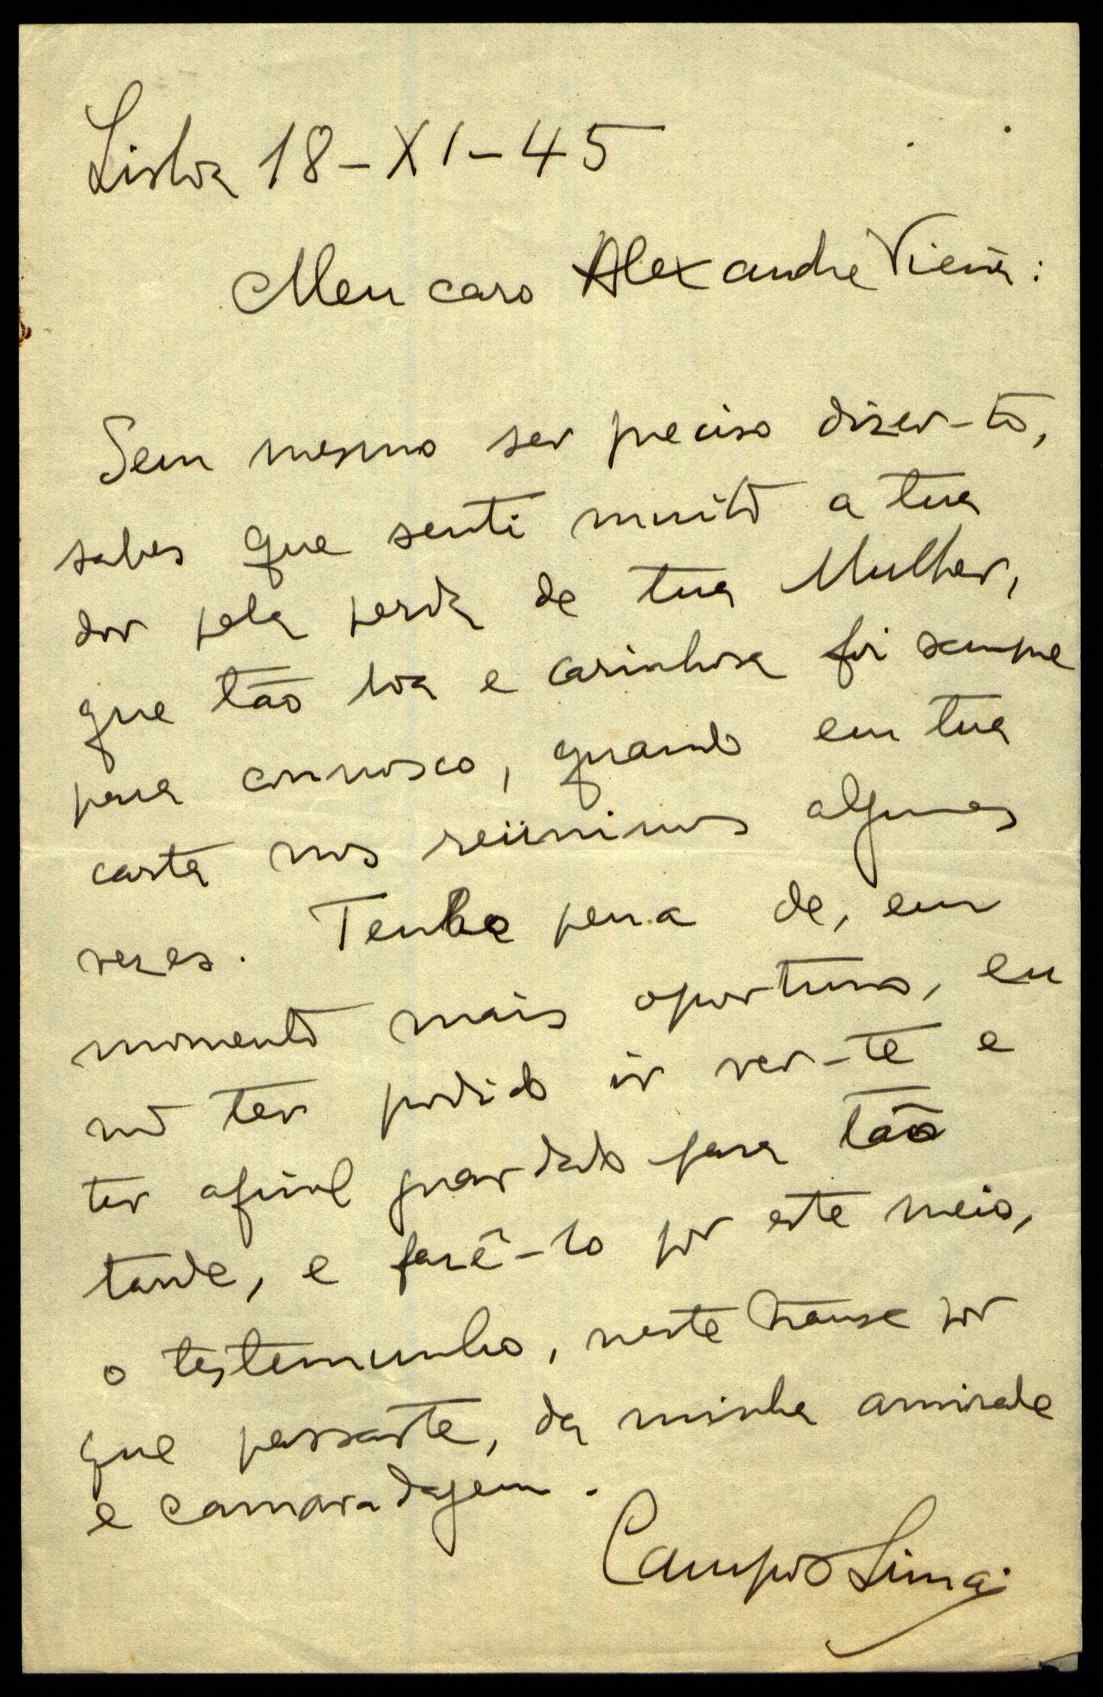 Lisboa 18-XI-45
Meu caro Alexandre Vieira:
Sem mesmo ser preciso dizer-to,
sabes que senti muito a tua
dor pela perda de tua Mulher,
que tão boa e carinhosa foi sempre
para connosco, quando em tua
casa nos reünimos algumas
vezes. Tenho pena de, em
momento mais oportuno, eu
não ter podido ir ver-te e
ter afinal guardado para tão
tarde, e fazê-lo por este meio,
o testemunho, neste transe por
que passaste, da minha amizade
e camaradagem.
Campos Lima